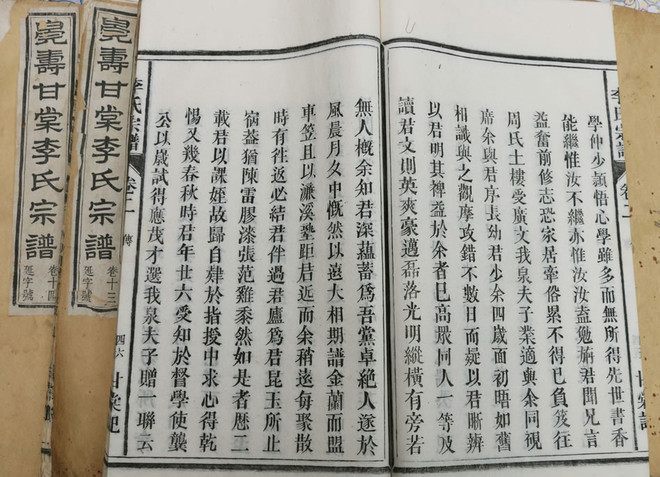 李氏宗譜
卷二
學仲少穎悟心學雖多而無所得先世書香
能繼惟汝不繼亦惟汝汝盍勉旃君聞兄言
益奮前修志恐家居牽俗累不得已負笈往
周氏土樓受廣文我泉夫子業適與余同硯
席余與君序長幼君少余四歲面初晤如舊
相識與之觀摩攻錯不數日而疑以君晰辨
以君明其裨益於余者已高於同人一等及
讀君文則英爽豪邁磊落光明縱橫有旁若
無人概余知君深蘊蓄爲吾黨卓絕人遂於
風晨月夕中慨然以遠大相期譜金蘭而盟
車笠且以濂溪塾距君近而余稍遠每聚散
時有徃返必結君伴過君廬爲君昆玉所止
宿葢猶陳雷膠漆張范雞黍然如是者歷二
載君以課姪故歸自肄於指授中求心得乾
惕又幾春秋時君年廿六受知於督學使龔
公以歲試得應茂才選我泉夫子贈一聯云
李氏宗譜
卷二
傳
四六
甘棠記
壽甘棠李氏宗譜
卷十三
延字號
壽甘棠李氏宗譜
卷十四
延字號